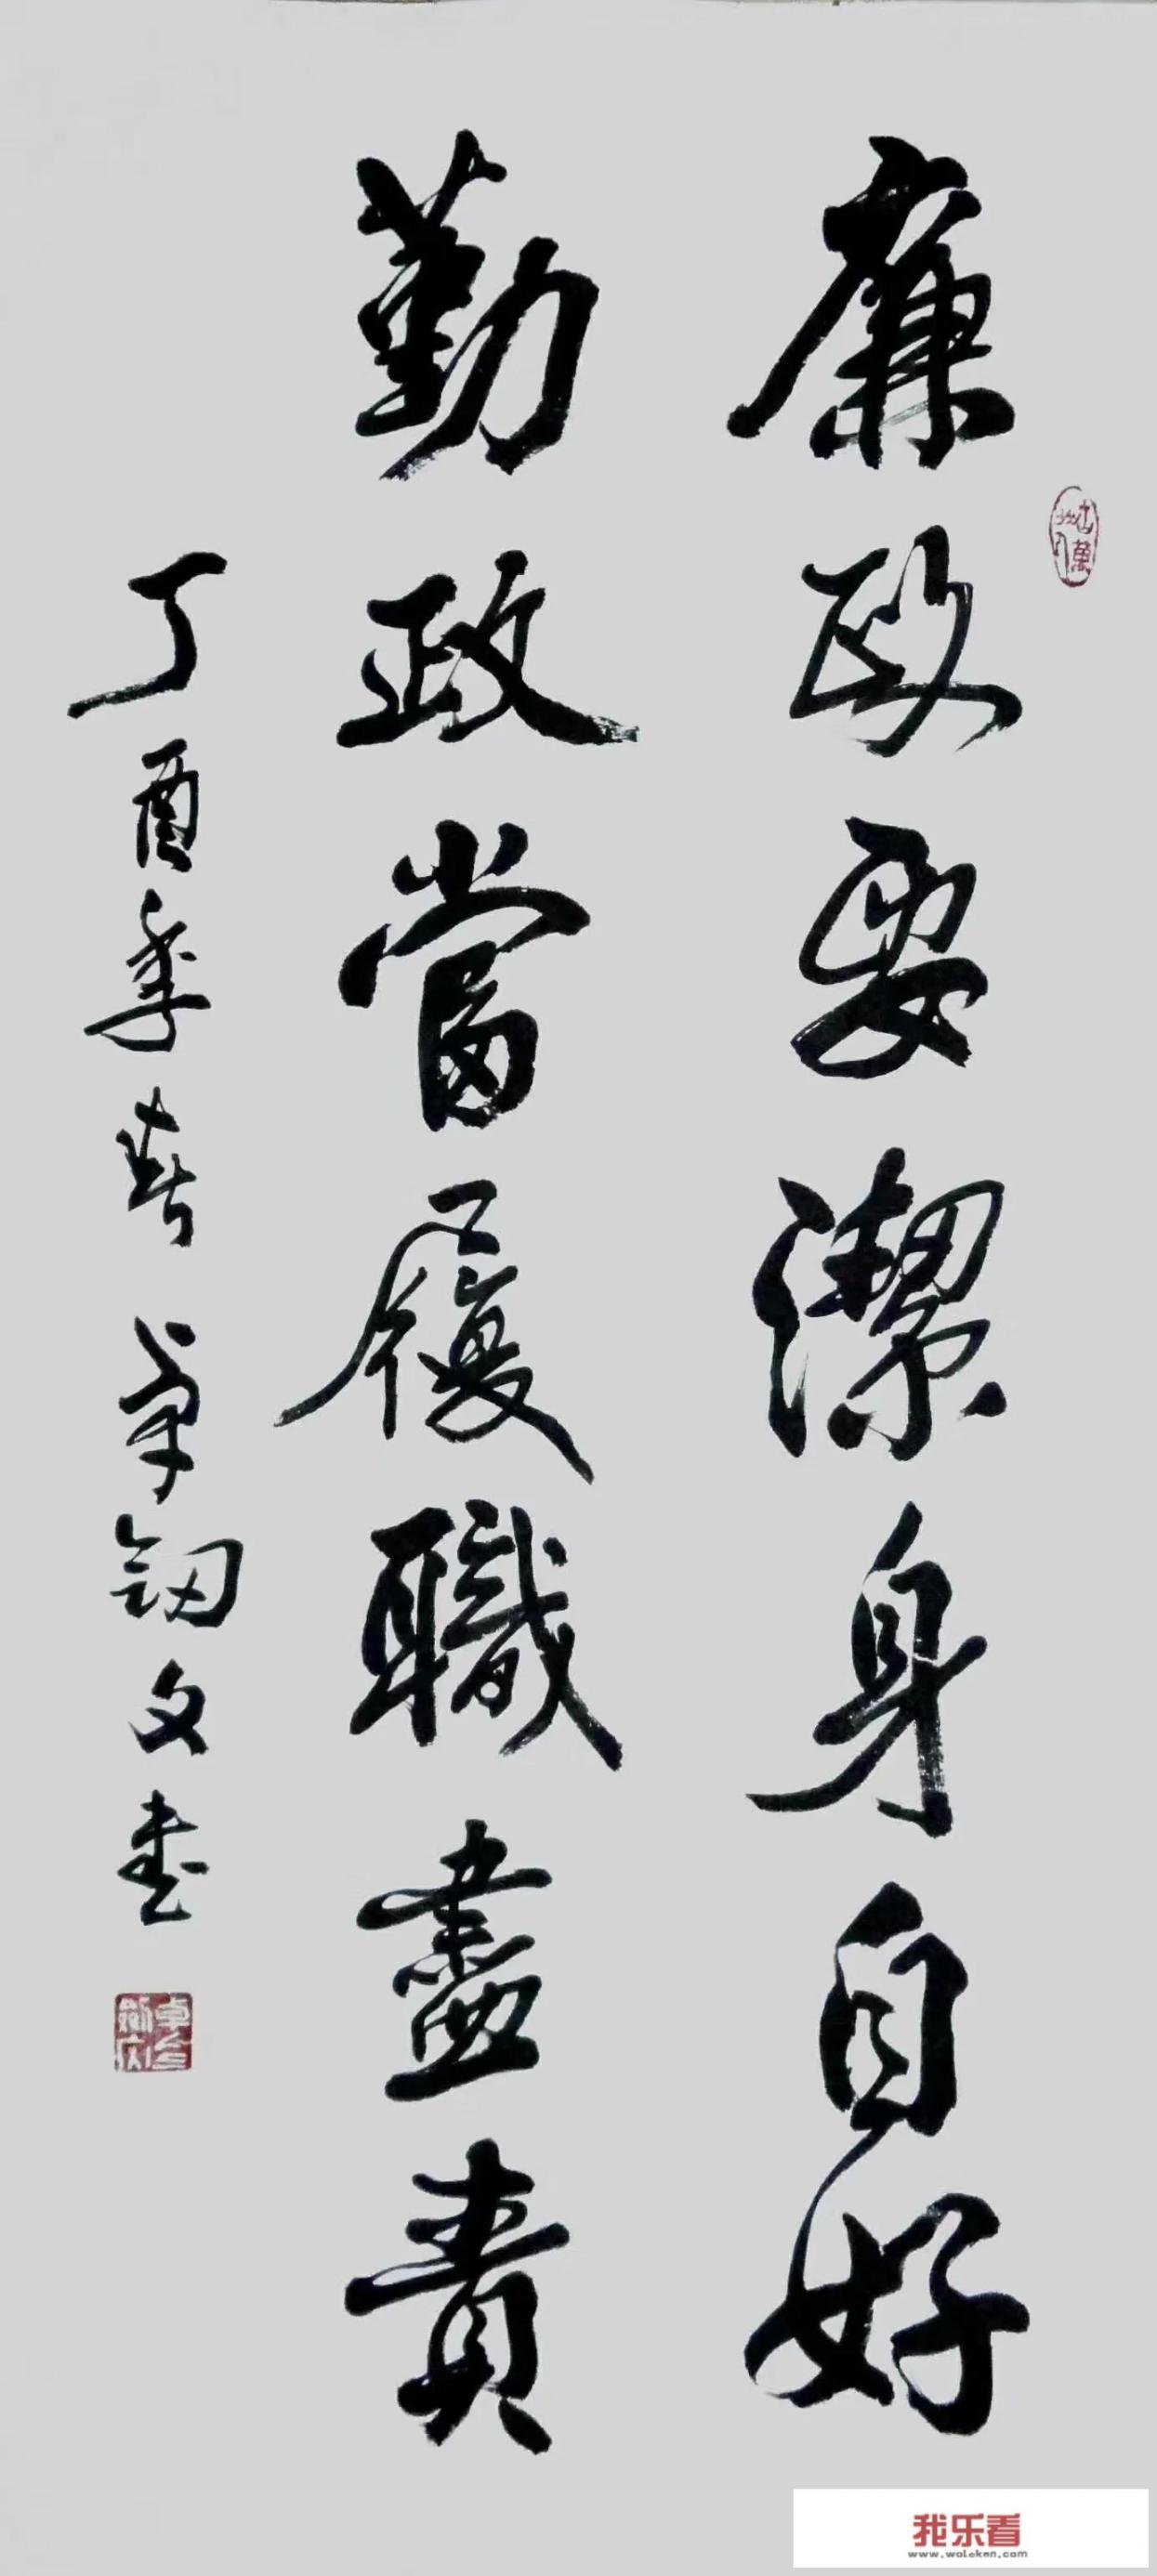 廉政要潔身自好
勤政當履職盡責
丁酉季春 卓劒文書
我乐看
www.woleken.com